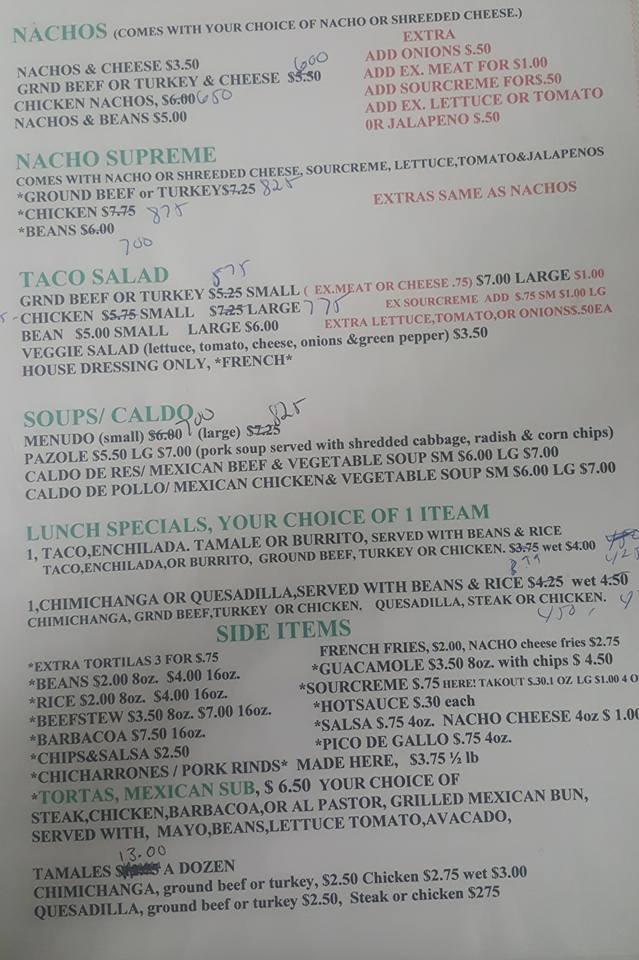 NACHOS (COMES WITH YOUR CHOICE OF NACHO OR SHREEDED CHEESE.)
EXTRA
ADD ONIONS $.50
ADD EX. MEAT FOR $1.00
ADD SOURCREME FOR$.50
ADD EX. LETTUCE OR TOMATO
OR JALAPENO $.50
NACHOS & CHEESE $3.50
600
GRND BEEF OR TURKEY & CHEESE $5.50
CHICKEN NACHOS, $6.00 650
NACHOS & BEANS $5.00
NACHO SUPREME
COMES WITH NACHO OR SHREEDED CHEESE, SOURCREME, LETTUCE,TOMATO&JALAPENOS
*GROUND BEEF or TURKEY$7.25 825
EXTRAS SAME AS NACHOS
*CHICKEN $7.75 875
*BEANS $6.00
700
TACO SALAD 575
GRND BEEF OR TURKEY $5.25 SMALL ( EX.MEAT OR CHEESE .75) $7.00 LARGE $1.00
-CHICKEN $5.75 SMALL $7.25 LARGE 775 EX SOURCREME ADD $.75 SM $1.00 LG
BEAN $5.00 SMALL LARGE $6.00 EXTRA LETTUCE,TOMATO,OR ONIONS$.50EA
VEGGIE SALAD (lettuce, tomato, cheese, onions &green pepper) $3.50
HOUSE DRESSING ONLY, *FRENCH*
SOUPS/ CALDO 700 825
MENUDO (small) $6.00 (large) $7.25
PAZOLE $5.50 LG $7.00 (pork soup served with shredded cabbage, radish & corn chips)
CALDO DE RES/ MEXICAN BEEF & VEGETABLE SOUP SM $6.00 LG $7.00
CALDO DE POLLO/ MEXICAN CHICKEN& VEGETABLE SOUP SM $6.00 LG $7.00
LUNCH SPECIALS, YOUR CHOICE OF 1 ITEAM
1, TACO,ENCHILADA. TAMALE OR BURRITO, SERVED WITH BEANS & RICE
TACO,ENCHILADA,OR BURRITO, GROUND BEEF, TURKEY OR CHICKEN. $3.75 wet $4.00
1,CHIMICHANGA OR QUESADILLA,SERVED WITH BEANS & RICE $4.25 wet 4.50
CHIMICHANGA, GRND BEEF,TURKEY OR CHICKEN. QUESADILLA, STEAK OR CHICKEN.
450
SIDE ITEMS
*EXTRA TORTILAS 3 FOR $.75
*BEANS $2.00 8oz. $4.00 16oz.
*RICE $2.00 8oz. $4.00 16oz.
*BEEFSTEW $3.50 8oz. $7.00 16oz.
*BARBACOA $7.50 16oz.
*CHIPS&SALSA $2.50
FRENCH FRIES, $2.00, NACHO cheese fries $2.75
*GUACAMOLE $3.50 8oz. with chips $ 4.50
*SOURCREME $.75 HERE! TAKOUT $.30.1 OZ LG $1.00 4 O
*HOTSAUCE $.30 each
*SALSA $.75 4oz. NACHO CHEESE 4oz $ 1.00
*PICO DE GALLO $.75 4oz.
*CHICHARRONES / PORK RINDS* MADE HERE, $3.75 ½ lb
*TORTAS, MEXICAN SUB, $ 6.50 YOUR CHOICE OF
STEAK,CHICKEN,BARBACOA,OR AL PASTOR, GRILLED MEXICAN BUN,
SERVED WITH, MAYO,BEANS,LETTUCE TOMATO,AVACADO,
13.00
TAMALES A DOZEN
CHIMICHANGA, ground beef or turkey, $2.50 Chicken $2.75 wet $3.00
QUESADILLA, ground beef or turkey $2.50, Steak or chicken $275